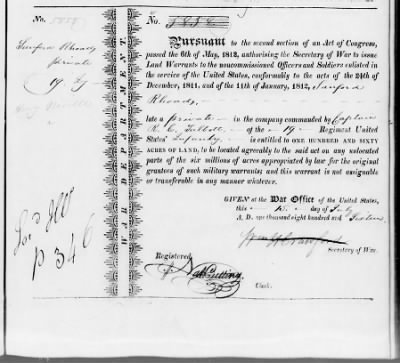 No.
Sanford Rhoads
private
19 Reg
No.
WAR DEPARTMENT.
Pursuant to the second section of an Act of Congress,
passed the 6th of May, 1812, authorising the Secretary of War to issue
Land Warrants to the noncommissioned Officers and Soldiers enlisted in
the service of the United States, conformably to the acts of the 24th of
December, 1811, and of the 11th of January, 1812, Sanford
Rhoads,
late a private in the company commanded by Captain
R. C. Talbott of the 19 Regiment United
States' Infantry is entitled to ONE HUNDRED AND SIXTY
ACRES OF LAND, to be located agreeably to the said act on any unlocated
parts of the six millions of acres appropriated by law for the original
grantees of such military warrants; and this warrant is not assignable
or transferable in any manner whatever.
GIVEN at the War Office of the United States,
this 15. day of July
A. D. one thousand eight hundred and Sixteen
Wm H Crawford
Secretary of War.
Registered
Nat Cutting
Clerk.
p 346